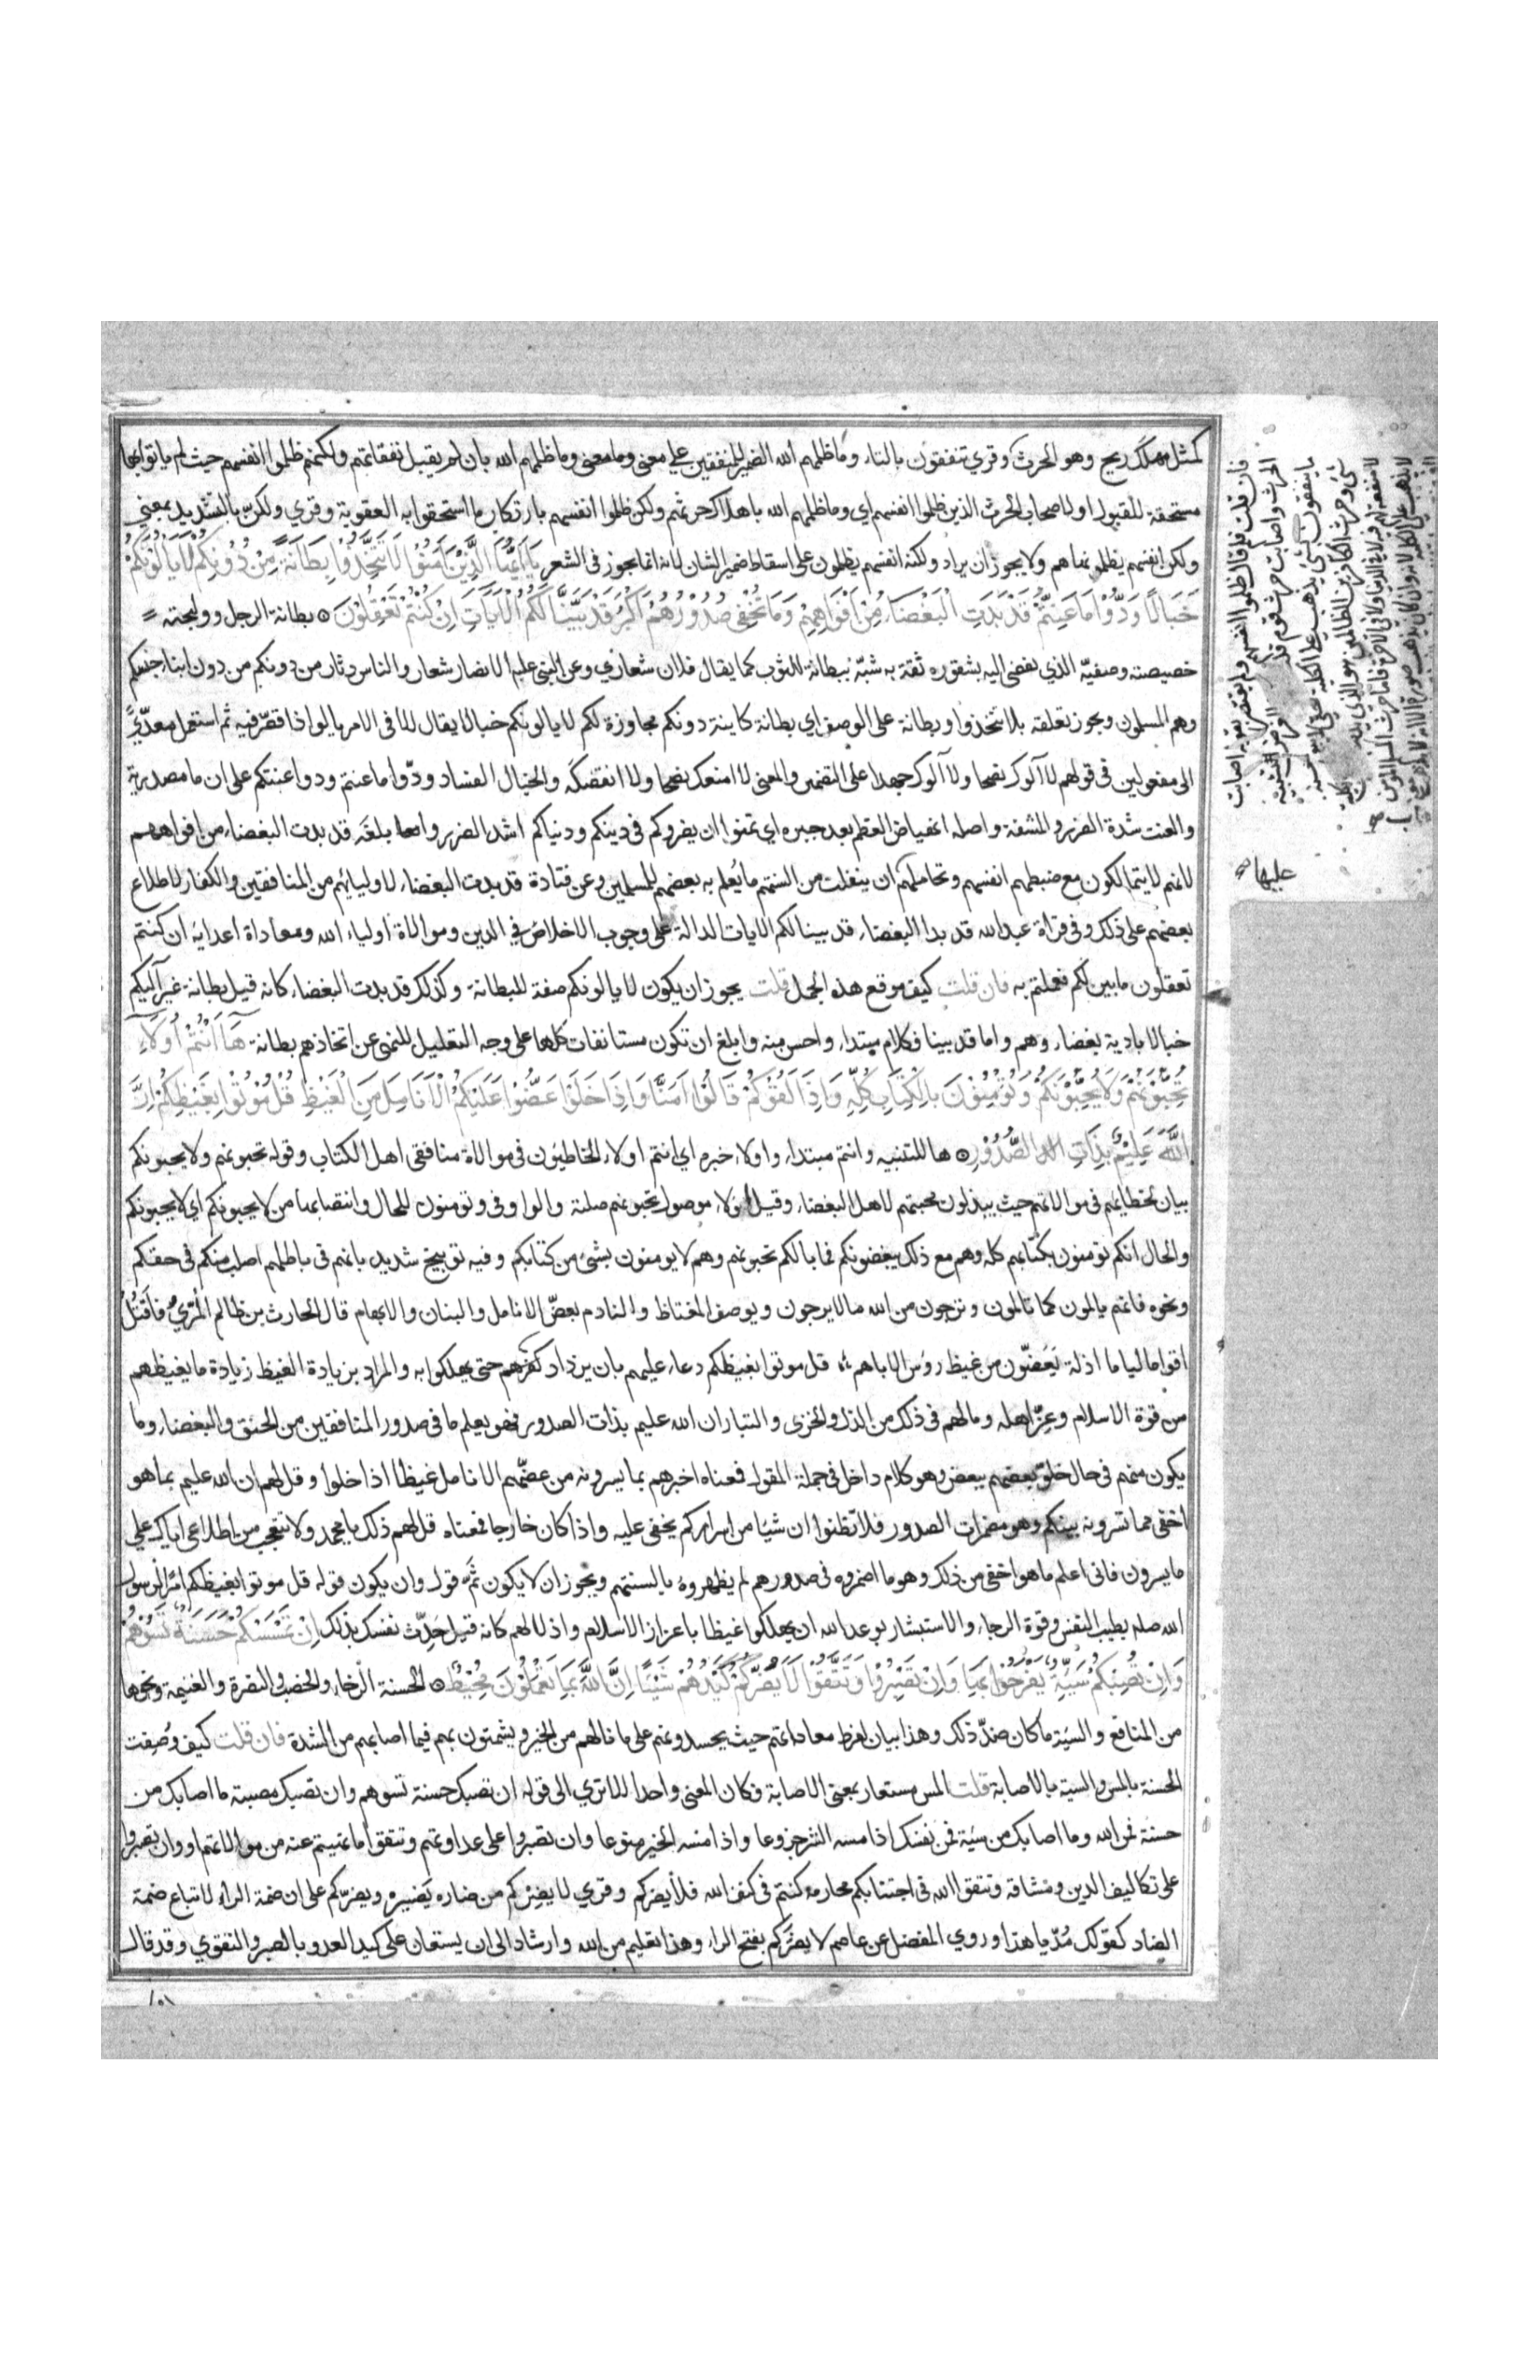 كمثل مهلك ريح وهو الحرث وقري تنفقون بالتاء وما ظلمهم الله الضمير للمنفقين على معنى وما معنى وما ظلمهم الله بان لم يقبل نفقاتهم ولكنهم ظلموا انفسهم حيث لم ياتوا بها
مستحقة للقبول او لاصحاب الحرث الذين ظلموا انفسهم اي وما ظلمهم الله باهلاك حرثهم ولكن ظلموا انفسهم بارتكاب ما استحقوا به العقوبة وقري ولكنّ بالتشديد بمعني
ولكن انفسهم يظلمونها هم ولا يجوز ان يراد ولكنه انفسهم يظلمون على اسقاط ضمير الشان لانه انما يجوز في الشعر يَا اَيُّهَا الَّذِيْنَ اٰمَنُوْا لَا تَتَّخِذُوْا بِطَانَةً مِنْ دُوْنِكُمْ لَا يَاْلُوْنَكُمْ
خَبَالًا وَدُّوْا مَا عَنِتُّمْ قَدْ بَدَتِ الْبَغْضَاءُ مِنْ اَفْوَاهِهِمْ وَمَا تُخْفِى صُدُوْرُهُمْ اَكْبَرُ قَدْ بَيَّنَّا لَكُمُ الْاٰيَاتِ اِنْ كُنْتُمْ تَعْقِلُوْنَ بطانة الرجل ووليجته
خصيصته وصفيّه الذي يفضى اليه بشقوره ثقة به شبّه ببطانة الثوب كما يقال فلان شعاري وعن النبي عليه الانصار شعار والناس دثار من دونكم من دون ابناء جنسكم
وهم المسلمون ويجوز تعلقه بلا تتخذوا وببطانة على الوصف اي بطانة كاينة من دونكم مجاوزة لكم لا يالونكم خبالا يقال الا في الامر يالو اذا قصّر فيه ثم استعمل معدّىً
الى مفعولين في قولهم لا آلوك نصحا ولا آلوك جهدا على التضمين والمعنى لا امنعك نصحا ولا انقصكه والخبال الفساد ودّوا ما عنتم ودوا عنتكم على ان ما مصدرية
والعنت شدة الضرر والمشقة واصله انهياض العظم بعد جبره اي تمنوا ان يضروكم في دينكم ودنياكم اشد الضرر وابلغه قد بدت البغضاء من افواههم
لانهم لا يتمالكون مع ضبطهم انفسهم وتحاملهم ان ينفلت من السنتهم ما يُعلم به بعضهم للمسلمين وعن قتادة قد بدت البغضاء لاوليائهم من المنافقين والكفار لاطلاع
بعضهم على ذلك وفي قراة عبد الله قد بدا البغضاء قد بينا لكم الايات الدالة على وجوب الاخلاص في الدين وموالاة أولياء الله ومعاداة اعدايه ان كنتم
تعقلون ما بين لكم فعملتم به فان قلت كيف موقع هذه الجمل قلت يجوز ان يكون لا يالونكم صفة للبطانة وكذلك قد بدت البغضاء كانه قيل بطانة غير آليكم
خبالا بادية بغضاءهم واما قد بينا فكلام مبتداء واحسن منه وابلغ ان تكون مستانفات كلها على وجه التعليل للنهى عن اتخاذهم بطانة هَا اَنْتُمْ اُولَاءِ
تُحِبُّوْنَهُمْ وَلَا يُحِبُّوْنَكُمْ وَتُوْمِنُوْنَ بِالْكِتَابِ كُلِّهِ وَاِذَا لَقُوْكُمْ قَالُوْا اٰمَنَّا وَاِذَا خَلَوْا عَضُّوْا عَلَيْكُمُ الْاَنَامِلَ مِنَ الْغَيْظِ قُلْ مُوْتُوْا بِغَيْظِكُمْ اِنَّ
اللَّهَ عَلِيْمٌ بِذَاتِ الصُّدُوْرِ ها للتنبيه وانتم مبتداء واولاء خبره اي انتم اولاء الخاطئون في موالاة منافقى اهل الكتاب وقوله تحبونهم ولا يحبونكم
بيان لخطائهم في موالاتهم حيث يبذلون محبتهم لاهل البغضاء وقيل اولاء موصول تحبونهم صلته والواو في وتومنون للحال وانتصابها من لا يحبونكم اي لا يحبونكم
والحال انكم تومنون بكتابهم كله وهم مع ذلك يبغضونكم فما بالكم تحبونهم وهم لا يومنون بشئ من كتابكم وفيه توبيخ شديد بانهم في باطلهم اصلب منكم في حقكم
ونحوه فانهم يالمون كما تالمون وترجون من الله ما لا يرجون ويوصف المغتاظ والنادم بعضّ الانامل والبنان والابهام قال الحارث بن ظالم المُرّيّ فَاَقْتُلُ
اقواما لياما اذلة يَعَضّون من غيظ رؤس الاباهم قل موتوا بغيظكم دعاء عليهم بان يزداد غيظهم حتى يهلكوا به والمراد بزيادة الغيظ زيادة ما يغيظهم
من قوة الاسلام وعِزّ اهله وما لهم في ذلك من الذل والخزى والتبار ان الله عليم بذات الصدور فهو يعلم ما في صدور المنافقين من الحنق والبغضاء وما
يكون منهم في حال خلوّ بعضهم ببعض وهو كلام داخل في جملة المقول فمعناه اخبرهم بما يسرونه من عضّهم الانامل غيظا اذا خلوا وقل لهم ان الله عليم بما هو
اخفى مما تسرونه بينكم وهو مضمرات الصدور فلا تظنوا ان شيًا من اسراركم يخفى عليه واذا كان خارجا فمعناه قل لهم ذلك يا محمد ولا تتعجب من اطلاعى اياك على
ما يسرون فانى اعلم ما هو اخفى من ذلك وهو ما اضمروه في صدورهم لم يظهروه بالسنتهم ويجوز ان لا يكون ثَمَّ قول وان يكون قوله قل موتوا بغيظكم امرا لرسول
الله صلعم بطيب النفس وقوة الرجاء والاستبشار بوعد الله ان يهلكوا غيظا باعزاز الاسلام واذلالهم كانه قيل حَدِّث نفسك بذلك اِنْ تَمْسَسْكُمْ حَسَنَةٌ تَسُوْهُمْ
وَاِنْ تُصِبْكُمْ سَيِّئَةٌ يَفْرَحُوْا بِهَا وَاِنْ تَصْبِرُوْا وَتَتَّقُوْا لَا يَضُرُّكُمْ كَيْدُهُمْ شَيْئًا اِنَّ اللَّهَ بِمَا يَعْمَلُوْنَ مُحِيْطٌ الحسنة الرخاء والخصب والنصرة والغنيمة ونحوها
من المنافع والسيّة ما كان ضدّ ذلك وهذا بيان لفرط معاداتهم حيث يحسدونهم على ما نالهم من الخير ويشمتون بهم فيما اصابهم من الشدة فان قلت كيف وُصفت
الحسنة بالمس والسية بالاصابة قلت المس مستعار بمعنى الاصابة فكان المعنى واحدا الا ترى الى قوله ان تصبك حسنة تسوهم وان تصبك مصيبة ما اصابك من
حسنة فمن الله وما اصابك من سيّة فمن نفسك اذا مسه الشر جزوعا واذا مسه الخير منوعا وان تصبروا على عداوتهم وتتقوا ما نهيتم عنه من موالاتهم او وان تصبروا
على تكاليف الدين ومشاقه وتتقوا الله في اجتنابكم محارمه كنتم في كنف الله فلا يضركم وقري لا يضِرْكم من ضاره يَضيره ويضرّكم على ان ضمة الراء لاتباع ضمة
الضاد كقولك مُدّ يا هذا وروي المفضل عن عاصم لا يضرَّكم بفتح الراء وهذا تعليم من الله وارشاد الى ان يستعان على كيد العدو بالصبر والتقوي وقد قال
فان قلت فلم قال ظلموا انفسهم ولم يقتصر بقوله اصابت
عليها